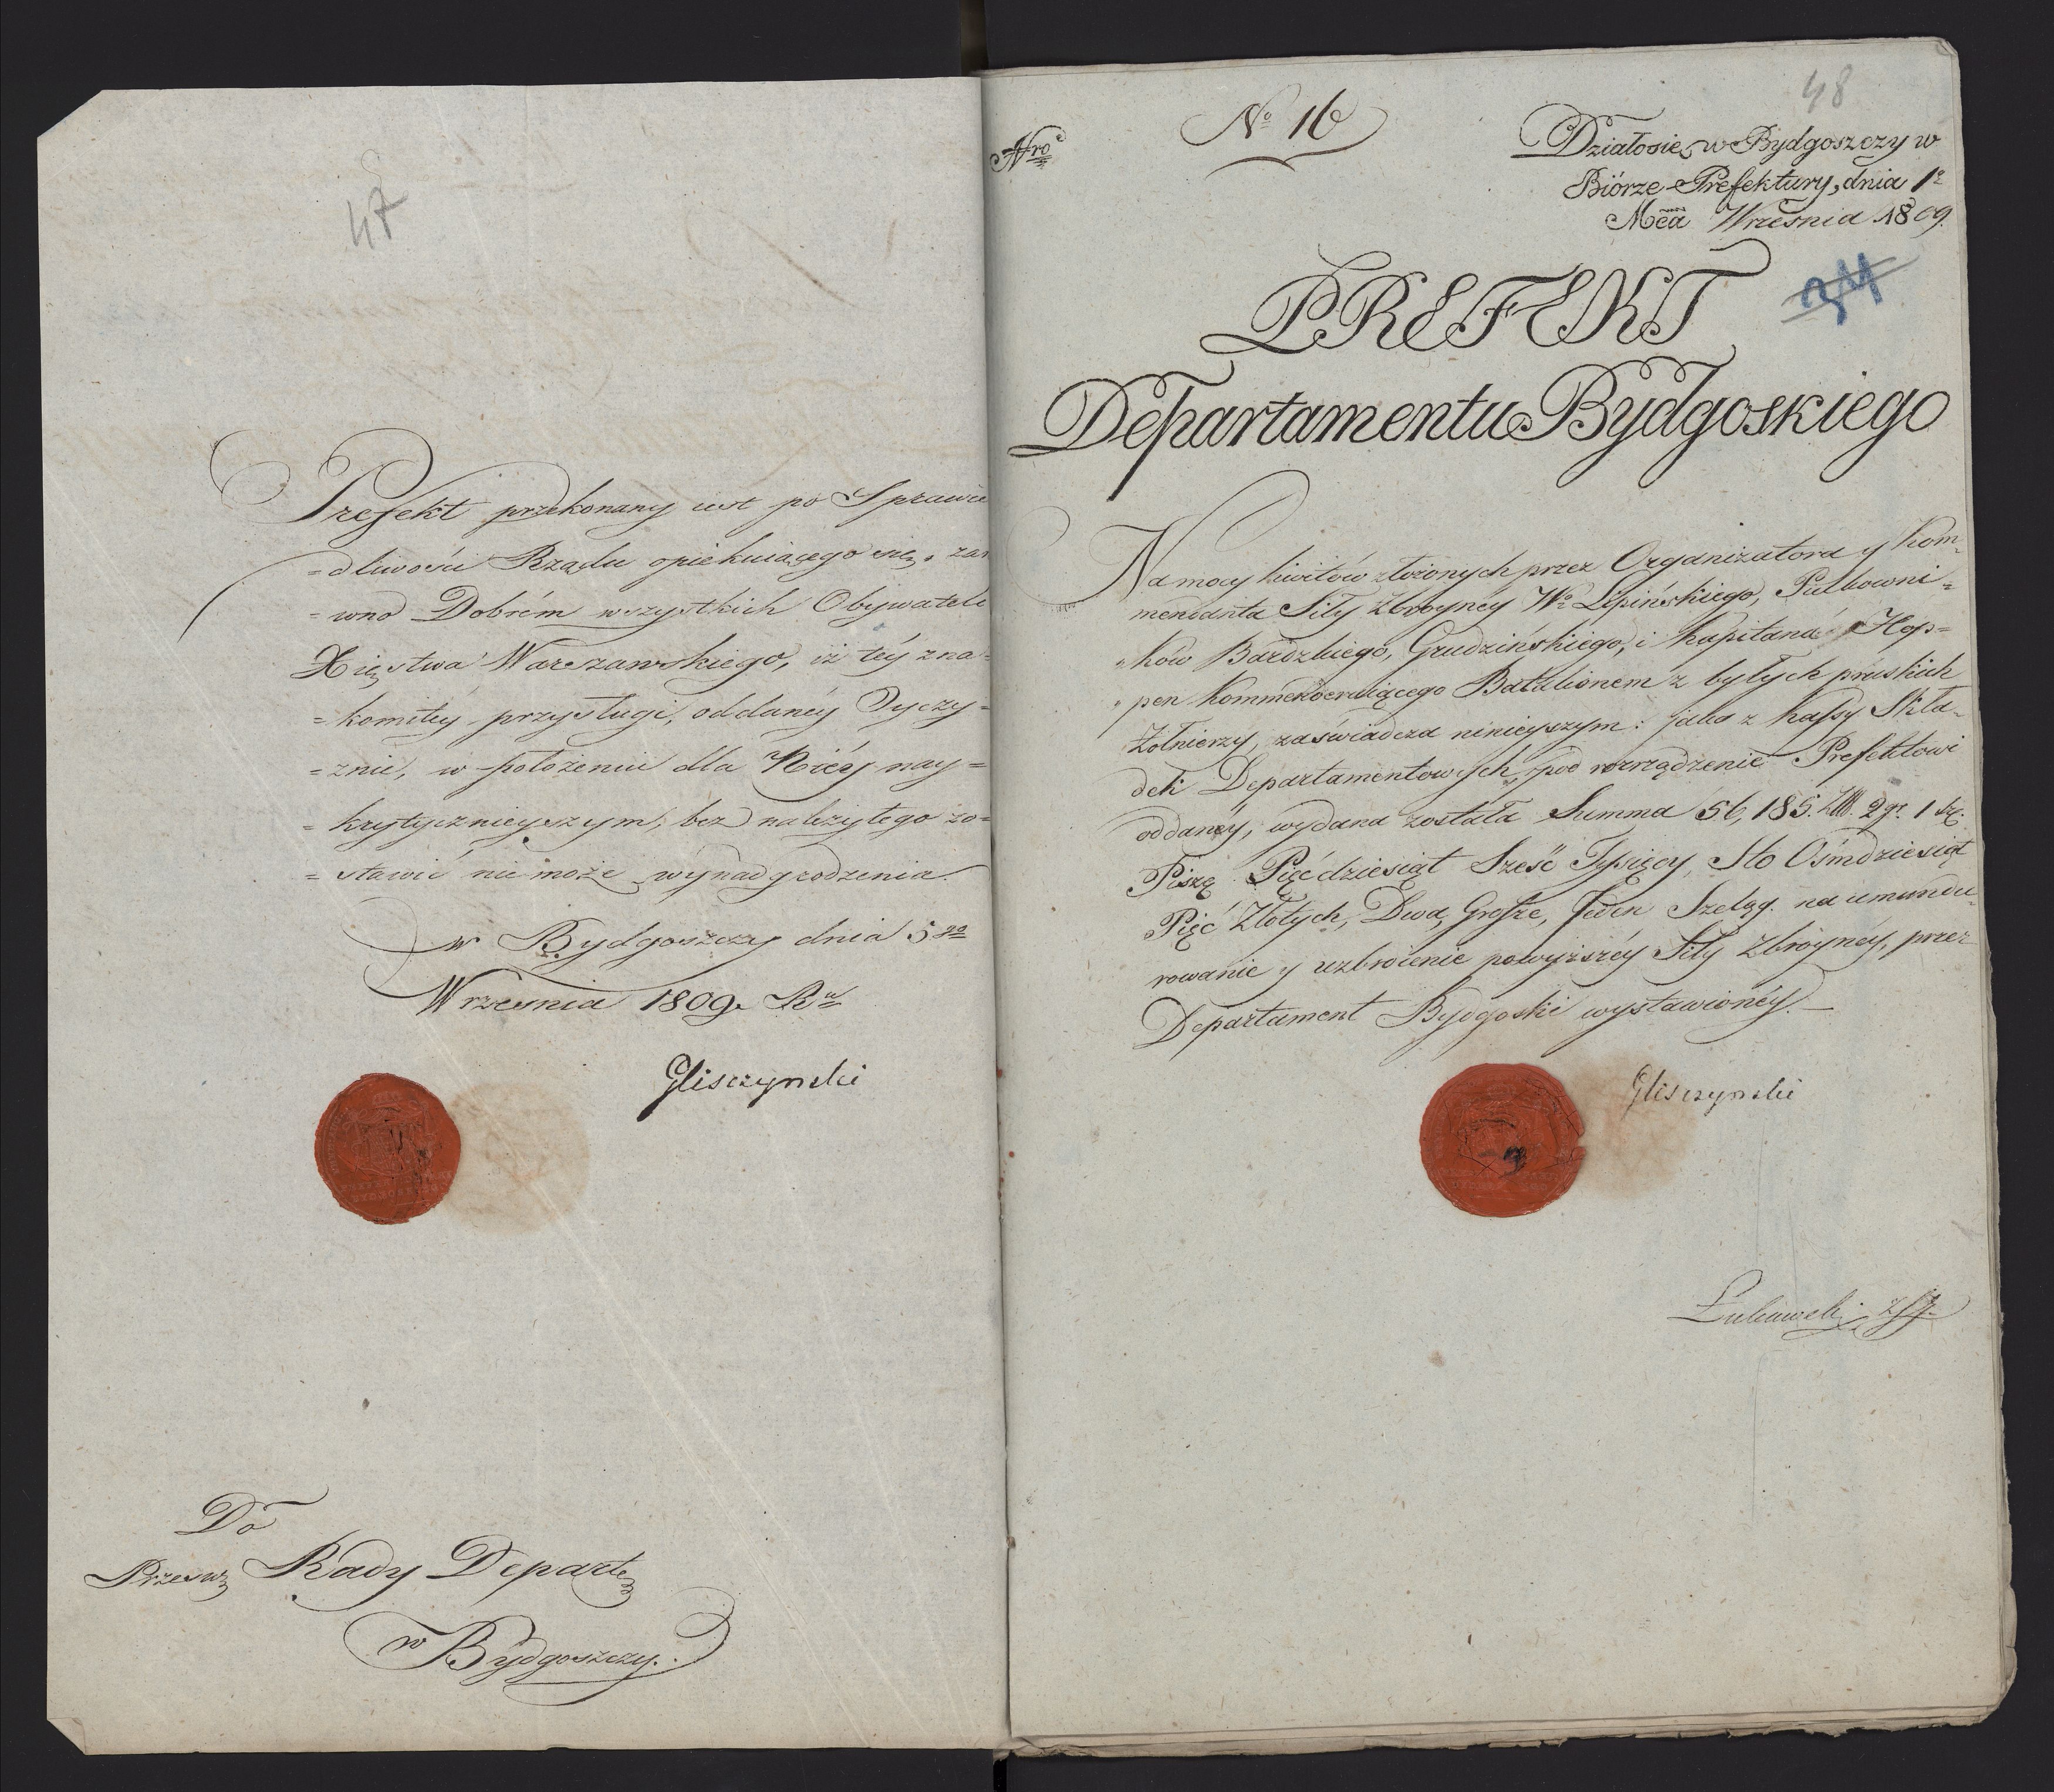 47
Prefekt przekonany iest po Sprawie
=dliwości Rządu opiekuiącego się, zar
=wno Dobrém wszystkich Obywateli
Xięstwa Warszawskiego, iż téy zna=
=komitéy przysługi, oddanéy Oyczy=
=znie, w położeniu dla Niéy nay=
=krytycznieyszym, bez należytego zo=
=stawić nie może wynadgrodzenia.
w Bydgoszczy dnia 5go
Września 1809. Ru
Gliszczynski
Do
Przesw. Rady Depart
w Bydgoszczy.
48
Nro
No 16
Działosię w Bydgoszczy w
Biórze Prefektury, dnia 1o
Mca Wrzesnia 1809.
34
PREFEKT
Departamentu Bydgoskiego
Na mocy kwitów złożonych przez Organizatora y Kom=
mendanta Siły Zbroyney Wo Lipińskiego, Pułkowni=
=ków Bardzkiego, Grudzińskiego, i Kapitana Hop=
=pen Kommenderuiącego Batalionem z byłych pruskich
Żołnierzy, zaświadcza ninieyszym: jako z Kassy Skła=
dek Departamentowych, pod rozrządzenie Prefektowi
oddanéy, wydana została Summa 56,185. Zł. 2 gr. 1 sz.
Piszę Pięćdziesiąt Sześć Tysięcy, Sto Ośmdziesiąt
Pięć Złotych, Dwa, Grosze, Jeden Szeląg. na umundu=
rowanie y uzbroienie powyższéy Siły Zbroyney, przez
Departament Bydgoski wystawionéy.
Gliszczynski